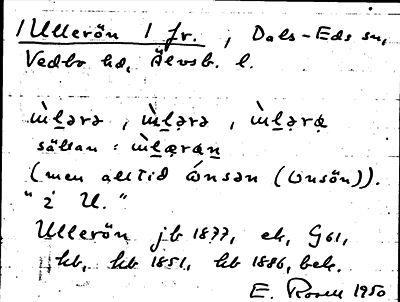 Ullerön 1 fr., Dals-Eds sn,
Vedbo hd, Älvsb. l.
ẁḻərə, ẁḻərə, ẁḻəra
sällan: ẁḻæran
(men alltid ónsən (onsön)).
"i U."
Ullerön jb 1877, ek, G61,
kb 1851, kb 1886, bek.
E. Rosell 1950